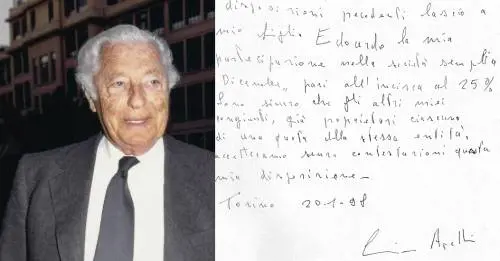 disposizioni precedenti lascio a
mio figlio Edoardo la mia
partecipazione nella società semplice
Dicembre, pari all'incirca al 25%
Sono sicuro che gli altri miei
congiunti, già proprietari ciascuno
di una quota della stessa entità,
accetteranno senza contestazioni questa
mia disposizione -
Torino 20-1-98
Agnelli